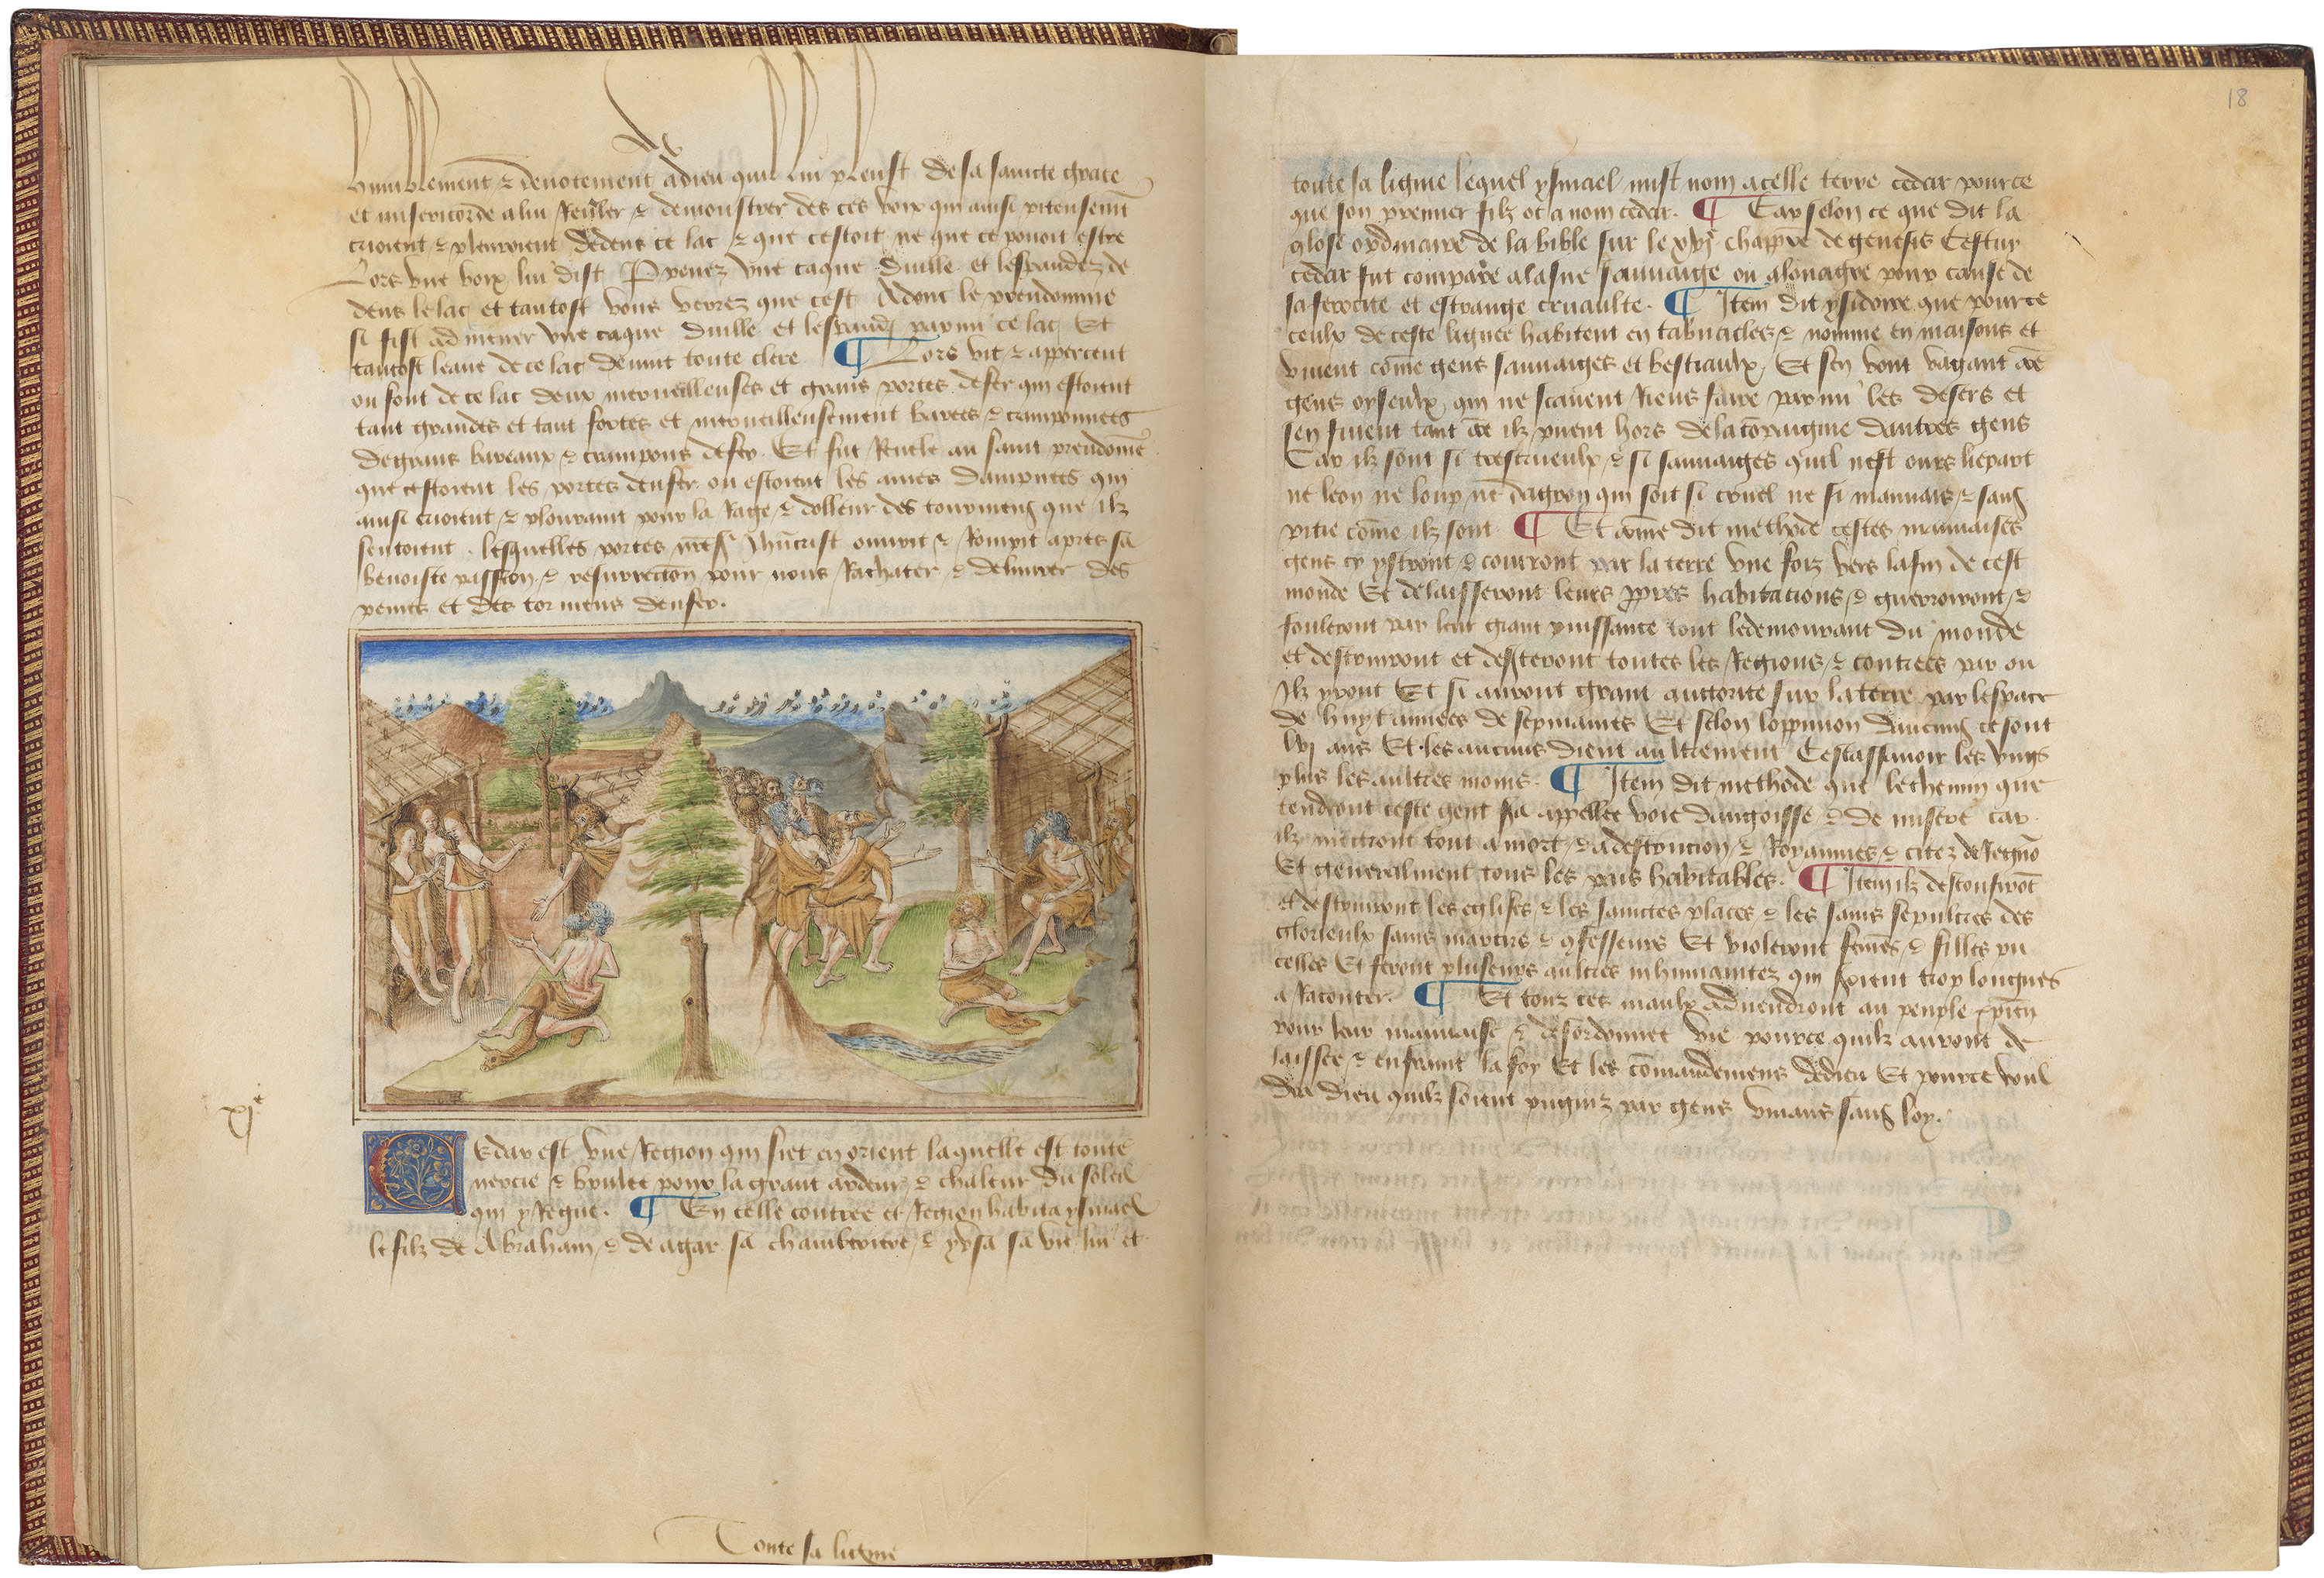 humblement ⁊ devotement a dieu quil lui pleust de sa saincte grace
et misericorde a lui Reveler ⁊ demonstrer des ces voix qui ainsi piteusemt
crioient ⁊ pleuroient dedens ce lac ⁊ que cestoit ne que ce povoit estre
Lors une voix lui dist Prenez une caque duille et lespandez de
dens le lac et tantost vous verrez que cest Adont le preudomme
si fist admener une caque duille et lespandi parmi ce lac Et
tantost leaue de ce lac devint toute clere ¶ Lors vit ⁊ appercent
ou font de ce lac deux merveilleuses et grans portes de fer qui estoient
tant grandes et tant fortes et merveilleusement barrees ⁊ cramponnees
de grans barreaux ⁊ crampons de fer. Et fut Revele au saint preudome
que cestoient les portes denfer ou estoient les ames dampnees qui
ainsi crioient ⁊ plouroient pour la Rage ⁊ dolleur des tourmens que ilz
sentoient. lesquelles portes nreS Jhucrist ouvrit ⁊ Rompit apres sa
benoiste passion ⁊ resurrection pour nous Rachater ⁊ delivrer des
peines et des tormens denfer.
xje
Cedar est une Region qui siet en orient laquelle est toute
nercie ⁊ brulee pour la grant ardeur ⁊ chaleur du soleil
qui y Regne. ¶ En celle contree et Region habita ysmael
le filz de Abraham ⁊ de agar sa chamberiere ⁊ ypsa sa vie lui et
Toute sa ligne
18
toute sa ligme lequel ysmael mist nom a celle terre cedar pource
que son premier filz ot a nom cedar. ¶ Car selon ce que dit la
glose ordinaire de la bible sur le xvj chappre de genesis Cestuy
cedar fut compare a lasne sauvaige ou alonagre pour cause de
sa ferocite et estrange cruaulte. ¶ Item dit ysidore que pource
ceulx de ceste lignee habitent en tabnacles ⁊ nomme en maisons et
vivent cōme gens sauvaiges et bestiaulx Et sen vont vagant cōe
gens oyseulx qui ne scavent Riens faire parmi les desers et
sen fuient tant cōe ilz puent hors de la cōpaignie dautres gens
Car ilz sont si trescrueulx ⁊ si sauvaiges quil nest ours liepart
ne leon ne loup ne dragon qui soit si cruel ne si mauvais ⁊ sans
pitie cōme ilz sont ¶ Et cōme dit methode cestes mauvaises
gens cy ystront ⁊ courront par la terre une foiz vers la fin de cest
monde Et delaisseront leurs ppres habitacions ⁊ guerroiront ⁊
fouleront par leur grant puissance tout le demourant du monde
et destruiront et desteront toutes les Regions ⁊ contrees par ou
Ilz yront Et si auront grant auctorite sur la terre par lespace
de huyt annees de sepmaines Et selon loppinion daucuns ce sont
lvj ans Et les aucuns dient aultrement Cestassavoir les ungs
plus les aultres moins. ¶ Item dit methode que le chemin que
tendront ceste gent sa appelle voie dangoisse ⁊ de misere car
ilz mectront tout a mort ⁊ a destruction ⁊ Royaumes ⁊ citez
Et generalment tous les pais habitables. ¶ Item ilz desconfiront
et destruiront les eglises ⁊ les sainctes places ⁊ les sains sepulcres des
glorieulx sains martirs ⁊ cfesseurs Et violeront femes ⁊ filles pu
celles Et feront pluseurs aultres inhumanitez qui soient trop longues
a Raconter. ¶ Et touz ces maulx advendront au peuple xpien
pour leur mauvaise ⁊ desordonnee vie pource quilz auront de
laissee ⁊ enfraint la foy Et les cōmandemens de dieu Et pource voul
dra dieu quilz soient pugniz par gens vivans sans loy.